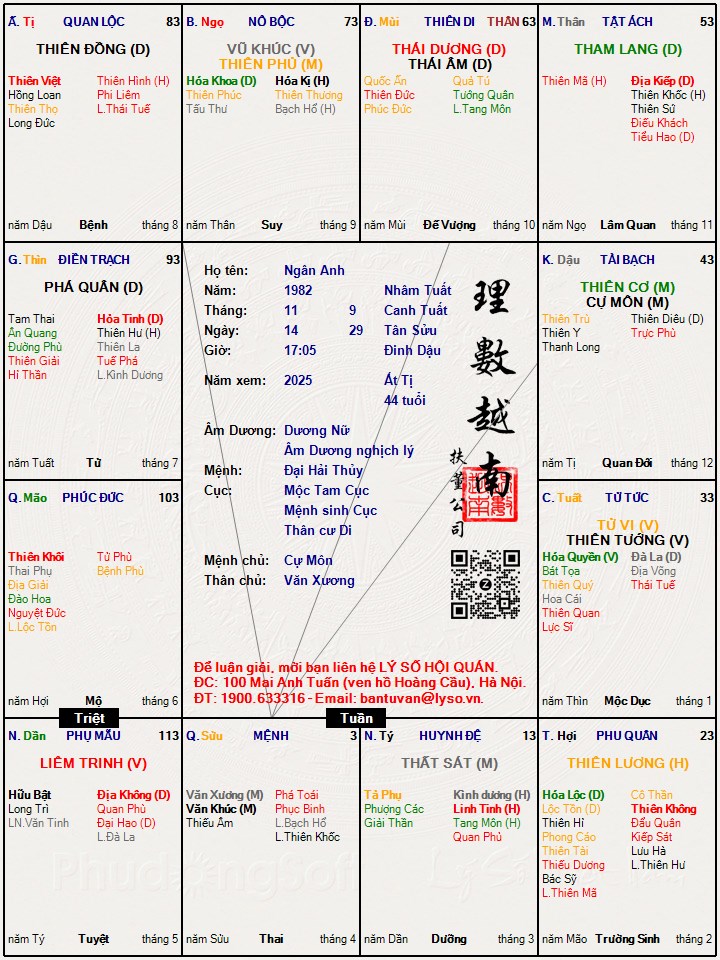 Ấ. Tị QUAN LỘC 83
THIÊN ĐỒNG (D)
Thiên Việt
Hồng Loan
Thiên Thọ
Long Đức
Thiên Hình (H)
Phi Liêm
L.Thái Tuế
năm Dậu Bệnh tháng 8
B. Ngọ NÔ BỘC 73
VŨ KHÚC (V)
THIÊN PHỦ (M)
Hóa Khoa (D)
Thiên Phúc
Tấu Thư
Hóa Kị (H)
Thiên Thương
Bạch Hổ (H)
năm Thân Suy tháng 9
Đ. Mùi THIÊN DI THÂN 63
THÁI DƯƠNG (D)
THÁI ÂM (D)
Quốc Ấn
Thiên Đức
Phúc Đức
Quả Tú
Tướng Quân
L.Tang Môn
năm Mùi Đế Vượng tháng 10
M. Thân TẬT ÁCH 53
THAM LANG (D)
Thiên Mã (H)
Địa Kiếp (D)
Thiên Khốc (H)
Thiên Sứ
Điếu Khách
Tiểu Hao (D)
năm Ngọ Lâm Quan tháng 11
G. Thìn ĐIỀN TRẠCH 93
PHÁ QUÂN (D)
Tam Thai
Ân Quang
Đường Phù
Thiên Giải
Hỉ Thần
Hỏa Tinh (D)
Thiên Hư (H)
Thiên La
Tuế Phá
L.Kình Dương
năm Tuất Tử tháng 7
Họ tên: Ngân Anh
Năm: 1982 Nhâm Tuất
Tháng: 11 9 Canh Tuất
Ngày: 14 29 Tân Sửu
Giờ: 17:05 Đinh Dậu
Năm xem: 2025 Ất Tị
44 tuổi
Âm Dương: Dương Nữ
Âm Dương nghịch lý
Mệnh: Đại Hải Thủy
Cục: Mộc Tam Cục
Mệnh sinh Cục
Thân cư Di
Mệnh chủ: Cự Môn
Thân chủ: Văn Xương
理數越南
扶董公司
Để luận giải, mời bạn liên hệ LÝ SỐ HỘI QUÁN.
ĐC: 100 Mai Anh Tuấn (ven hồ Hoàng Cầu), Hà Nội.
ĐT: 1900.633316 - Email: bantuvan@lyso.vn.
K. Dậu TÀI BẠCH 43
THIÊN CƠ (M)
CỰ MÔN (M)
Thiên Trù
Thiên Y
Thanh Long
Thiên Diêu (D)
Trực Phù
năm Tị Quan Đới tháng 12
Q. Mão PHÚC ĐỨC 103
Thiên Khôi
Thai Phụ
Địa Giải
Đào Hoa
Nguyệt Đức
L.Lộc Tồn
Tử Phù
Bệnh Phù
năm Hợi Mộ tháng 6
C. Tuất TỬ TỨC 33
TỬ VI (V)
THIÊN TƯỚNG (V)
Hóa Quyền (V)
Bát Tọa
Thiên Quý
Hoa Cái
Thiên Quan
Lực Sĩ
Đà La (D)
Địa Võng
Thái Tuế
năm Thìn Mộc Dục tháng 1
Triệt
Tuần
N. Dần PHỤ MẪU 113
LIÊM TRINH (V)
Hữu Bật
Long Trì
LN.Văn Tinh
Địa Không (D)
Quan Phù
Đại Hao (D)
L.Đà La
năm Tý Tuyệt tháng 5
Q. Sửu MỆNH 3
Văn Xương (M)
Văn Khúc (M)
Thiếu Âm
Phá Toái
Phục Binh
L.Bạch Hổ
L.Thiên Khốc
năm Sửu Thai tháng 4
N. Tý HUYNH ĐỆ 13
THẤT SÁT (M)
Tả Phụ
Phượng Các
Giải Thần
Kình dương (H)
Linh Tinh (H)
Tang Môn (H)
Quan Phủ
năm Dần Dưỡng tháng 3
T. Hợi PHU QUÂN 23
THIÊN LƯƠNG (H)
Hóa Lộc (D)
Lộc Tồn (D)
Thiên Hỉ
Phong Cáo
Thiên Tài
Thiếu Dương
Bác Sỹ
L.Thiên Mã
Cô Thần
Thiên Không
Đẩu Quân
Kiếp Sát
Lưu Hà
L.Thiên Hư
năm Mão Trường Sinh tháng 2